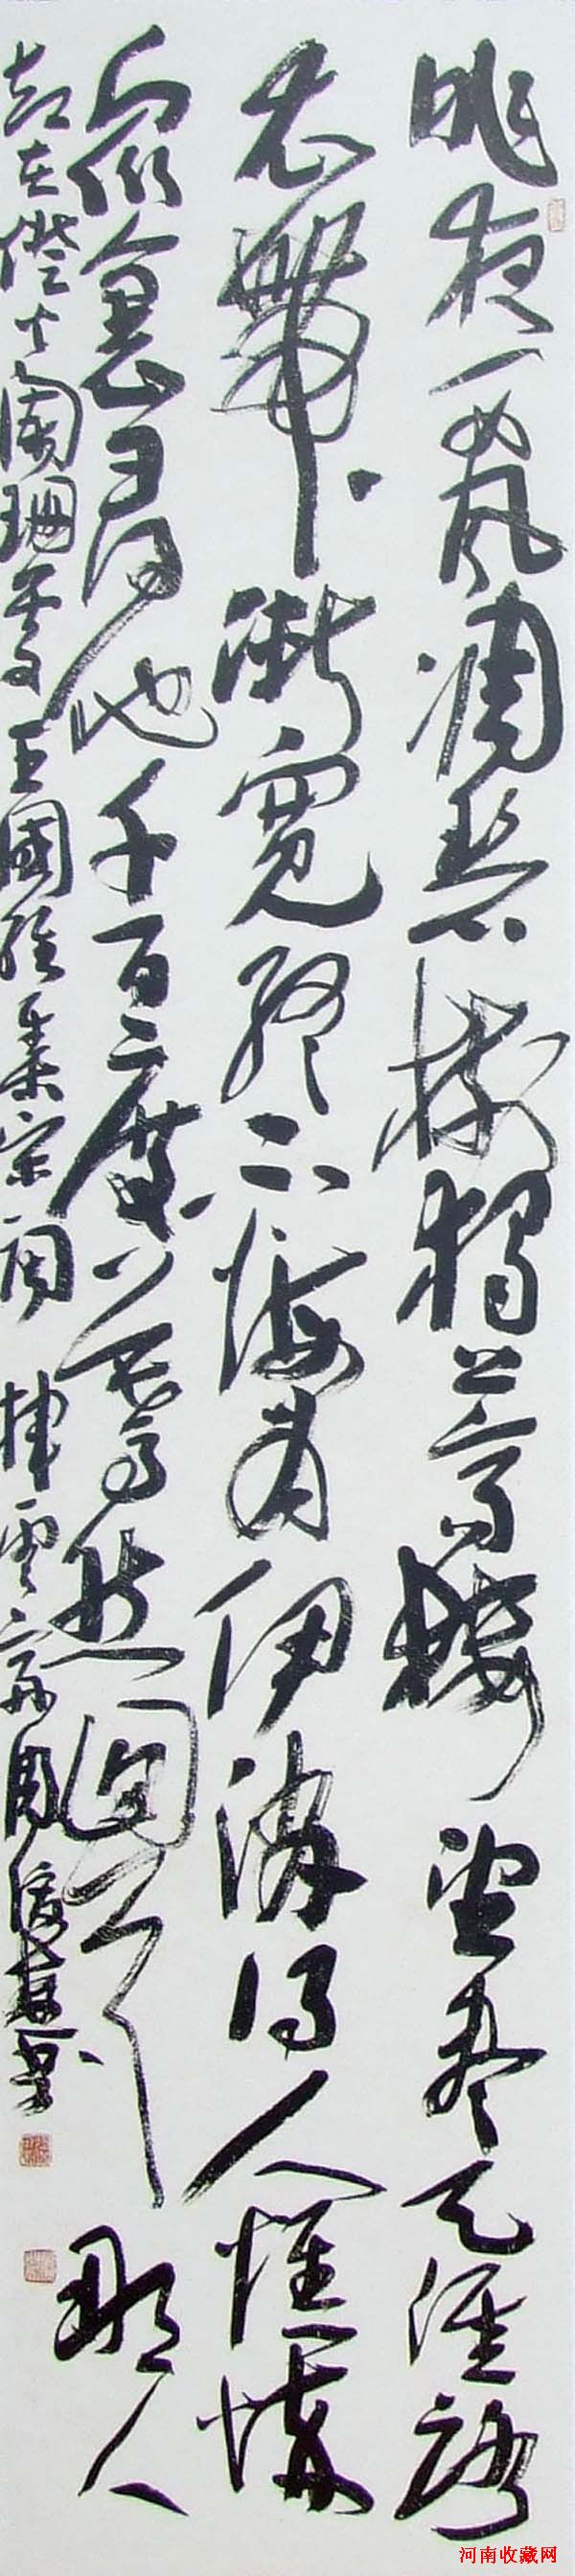 昨夜西風凋碧樹獨上高樓望盡天涯路
衣帶漸寬終不悔為伊消得人憔悴
衆裏尋他千百度驀然回首那人
却在燈火闌珊處 王國維集宋詞 雲齋周俊杰書
河南收藏网